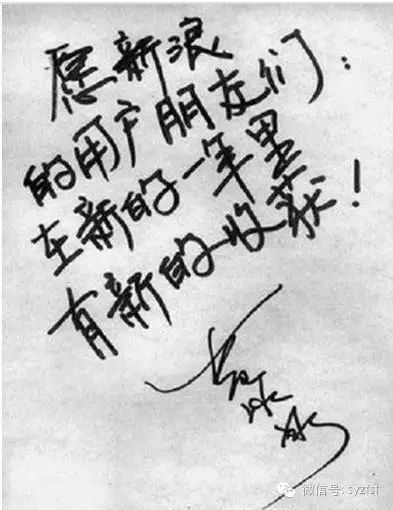 愿新浪
的用户朋友们：
在新的一年里
有新的收获！
微信号: syzfst